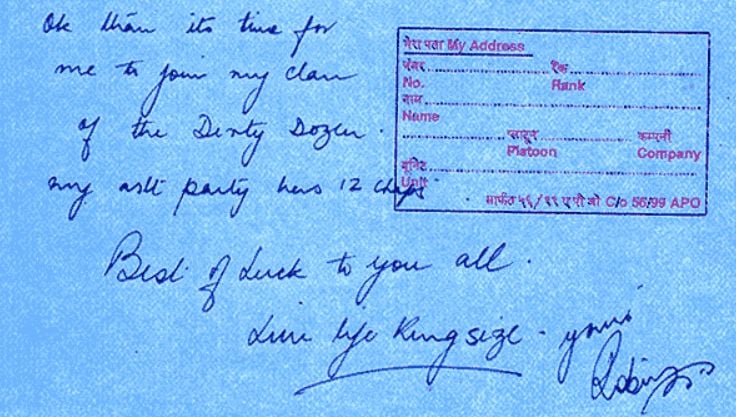 Ok then its time for
me to join my clan
of the Dirty Dozen.
my aslt party has 12 chaps
Best of Luck to you all.
Live life King size - yours
Robin
मेरा पता My Address
नंबर रैंक
No. Rank
नाम
Name
प्लाटून कम्पनी
Platoon Company
यूनिट
Unit
मार्फत ५६/९९ ए पी ओ C/o 56/99 APO